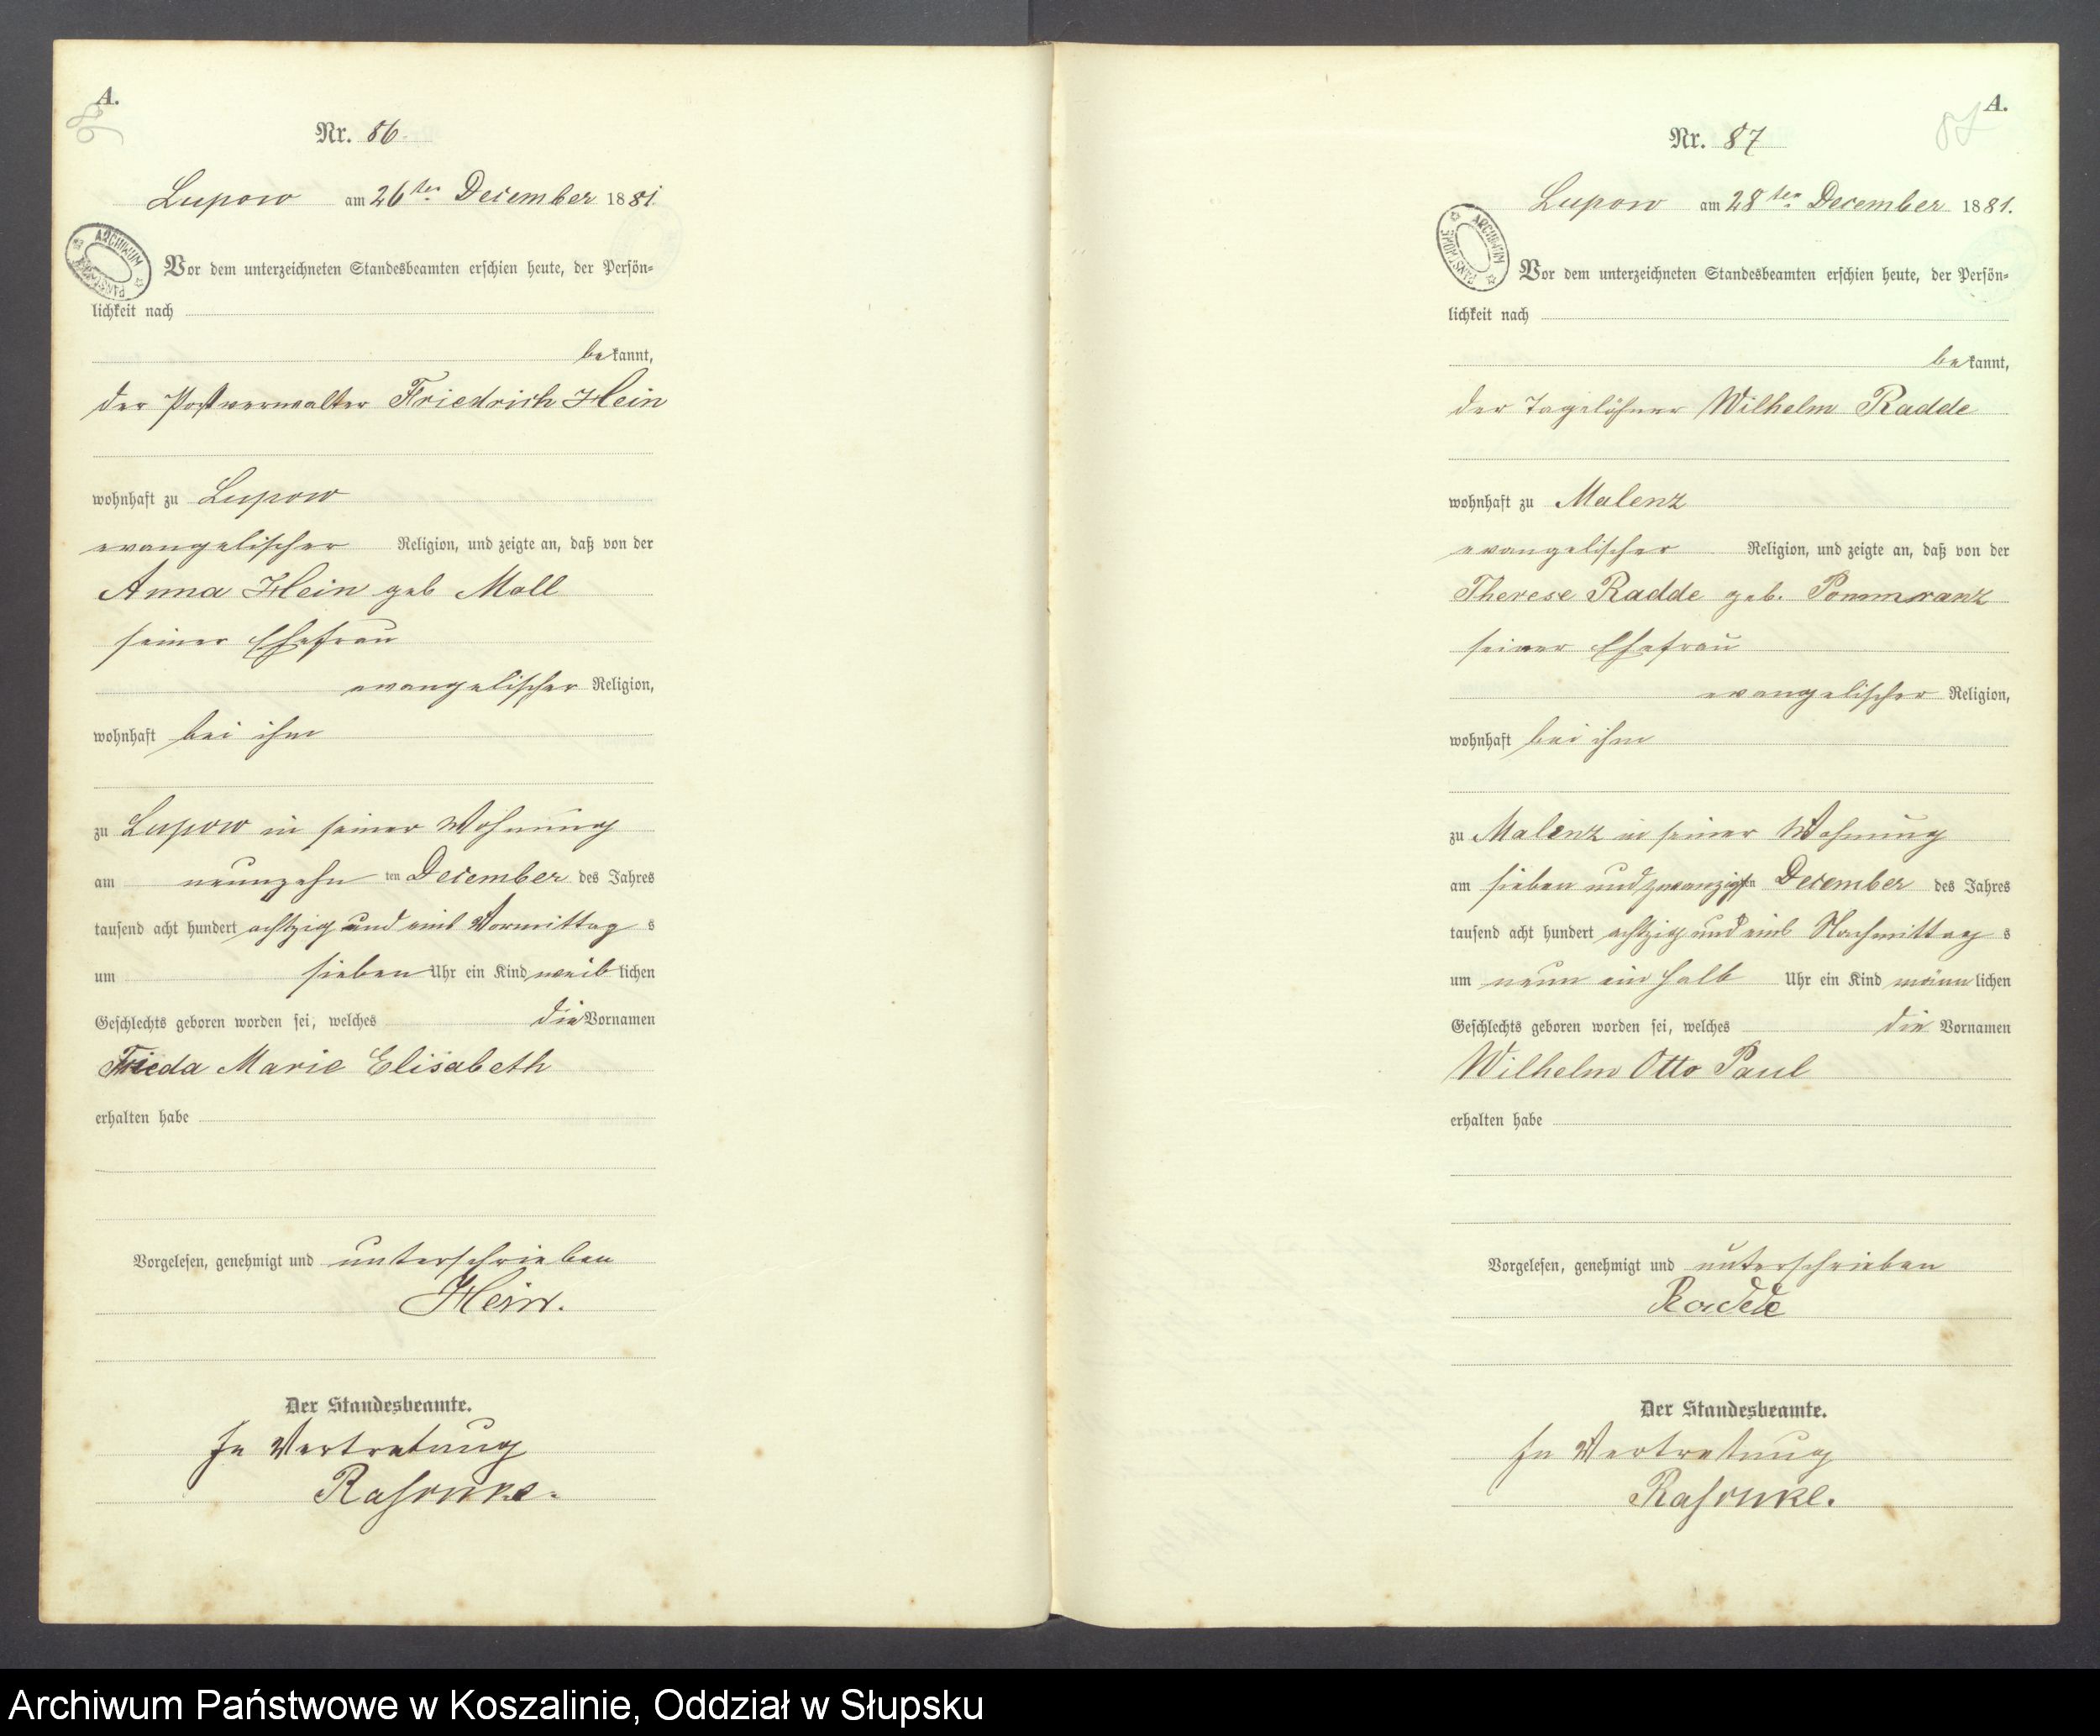 A.
86
Nr. 86.
Lupow am 26ten December 1881.
ARCHIWUM PAŃSTWOWE
Vor dem unterzeichneten Standesbeamten erschien heute, der Persön=
lichkeit nach
bekannt,
der Postverwalter Friedrich Hein
wohnhaft zu Lupow
evangelischer Religion, und zeigte an, daß von der
Anna Hein geb Moll
seiner Ehefrau
evangelischer Religion,
wohnhaft bei ihm
zu Lupow in seiner Wohnung
am neunzehn ten December des Jahres
tausend acht hundert achtzig und eins Vormittag s
um sieben Uhr ein Kind weib lichen
Geschlechts geboren worden sei, welches die Vornamen
Frieda Marie Elisabeth
erhalten habe
Vorgelesen, genehmigt und unterschrieben
Hein.
Der Standesbeamte.
In Vertretung
A.
87
Nr. 87
Lupow am 28ten December 1881.
ARCHIWUM PAŃSTWOWE
Vor dem unterzeichneten Standesbeamten erschien heute, der Persön=
lichkeit nach
bekannt,
der Tagelöhner Wilhelm Radde
wohnhaft zu Malenz
evangelischer Religion, und zeigte an, daß von der
Therese Radde geb. Pommranz
seiner Ehefrau
evangelischer Religion,
wohnhaft bei ihm
zu Malenz in seiner Wohnung
am sieben und zwanzigsten December des Jahres
tausend acht hundert achtzig und eins Nachmittag s
um neun ein halb Uhr ein Kind männ lichen
Geschlechts geboren worden sei, welches die Vornamen
Wilhelm Otto Paul
erhalten habe
Vorgelesen, genehmigt und unterschrieben
Radde
Der Standesbeamte.
In Vertretung
Archiwum Państwowe w Koszalinie, Oddział w Słupsku